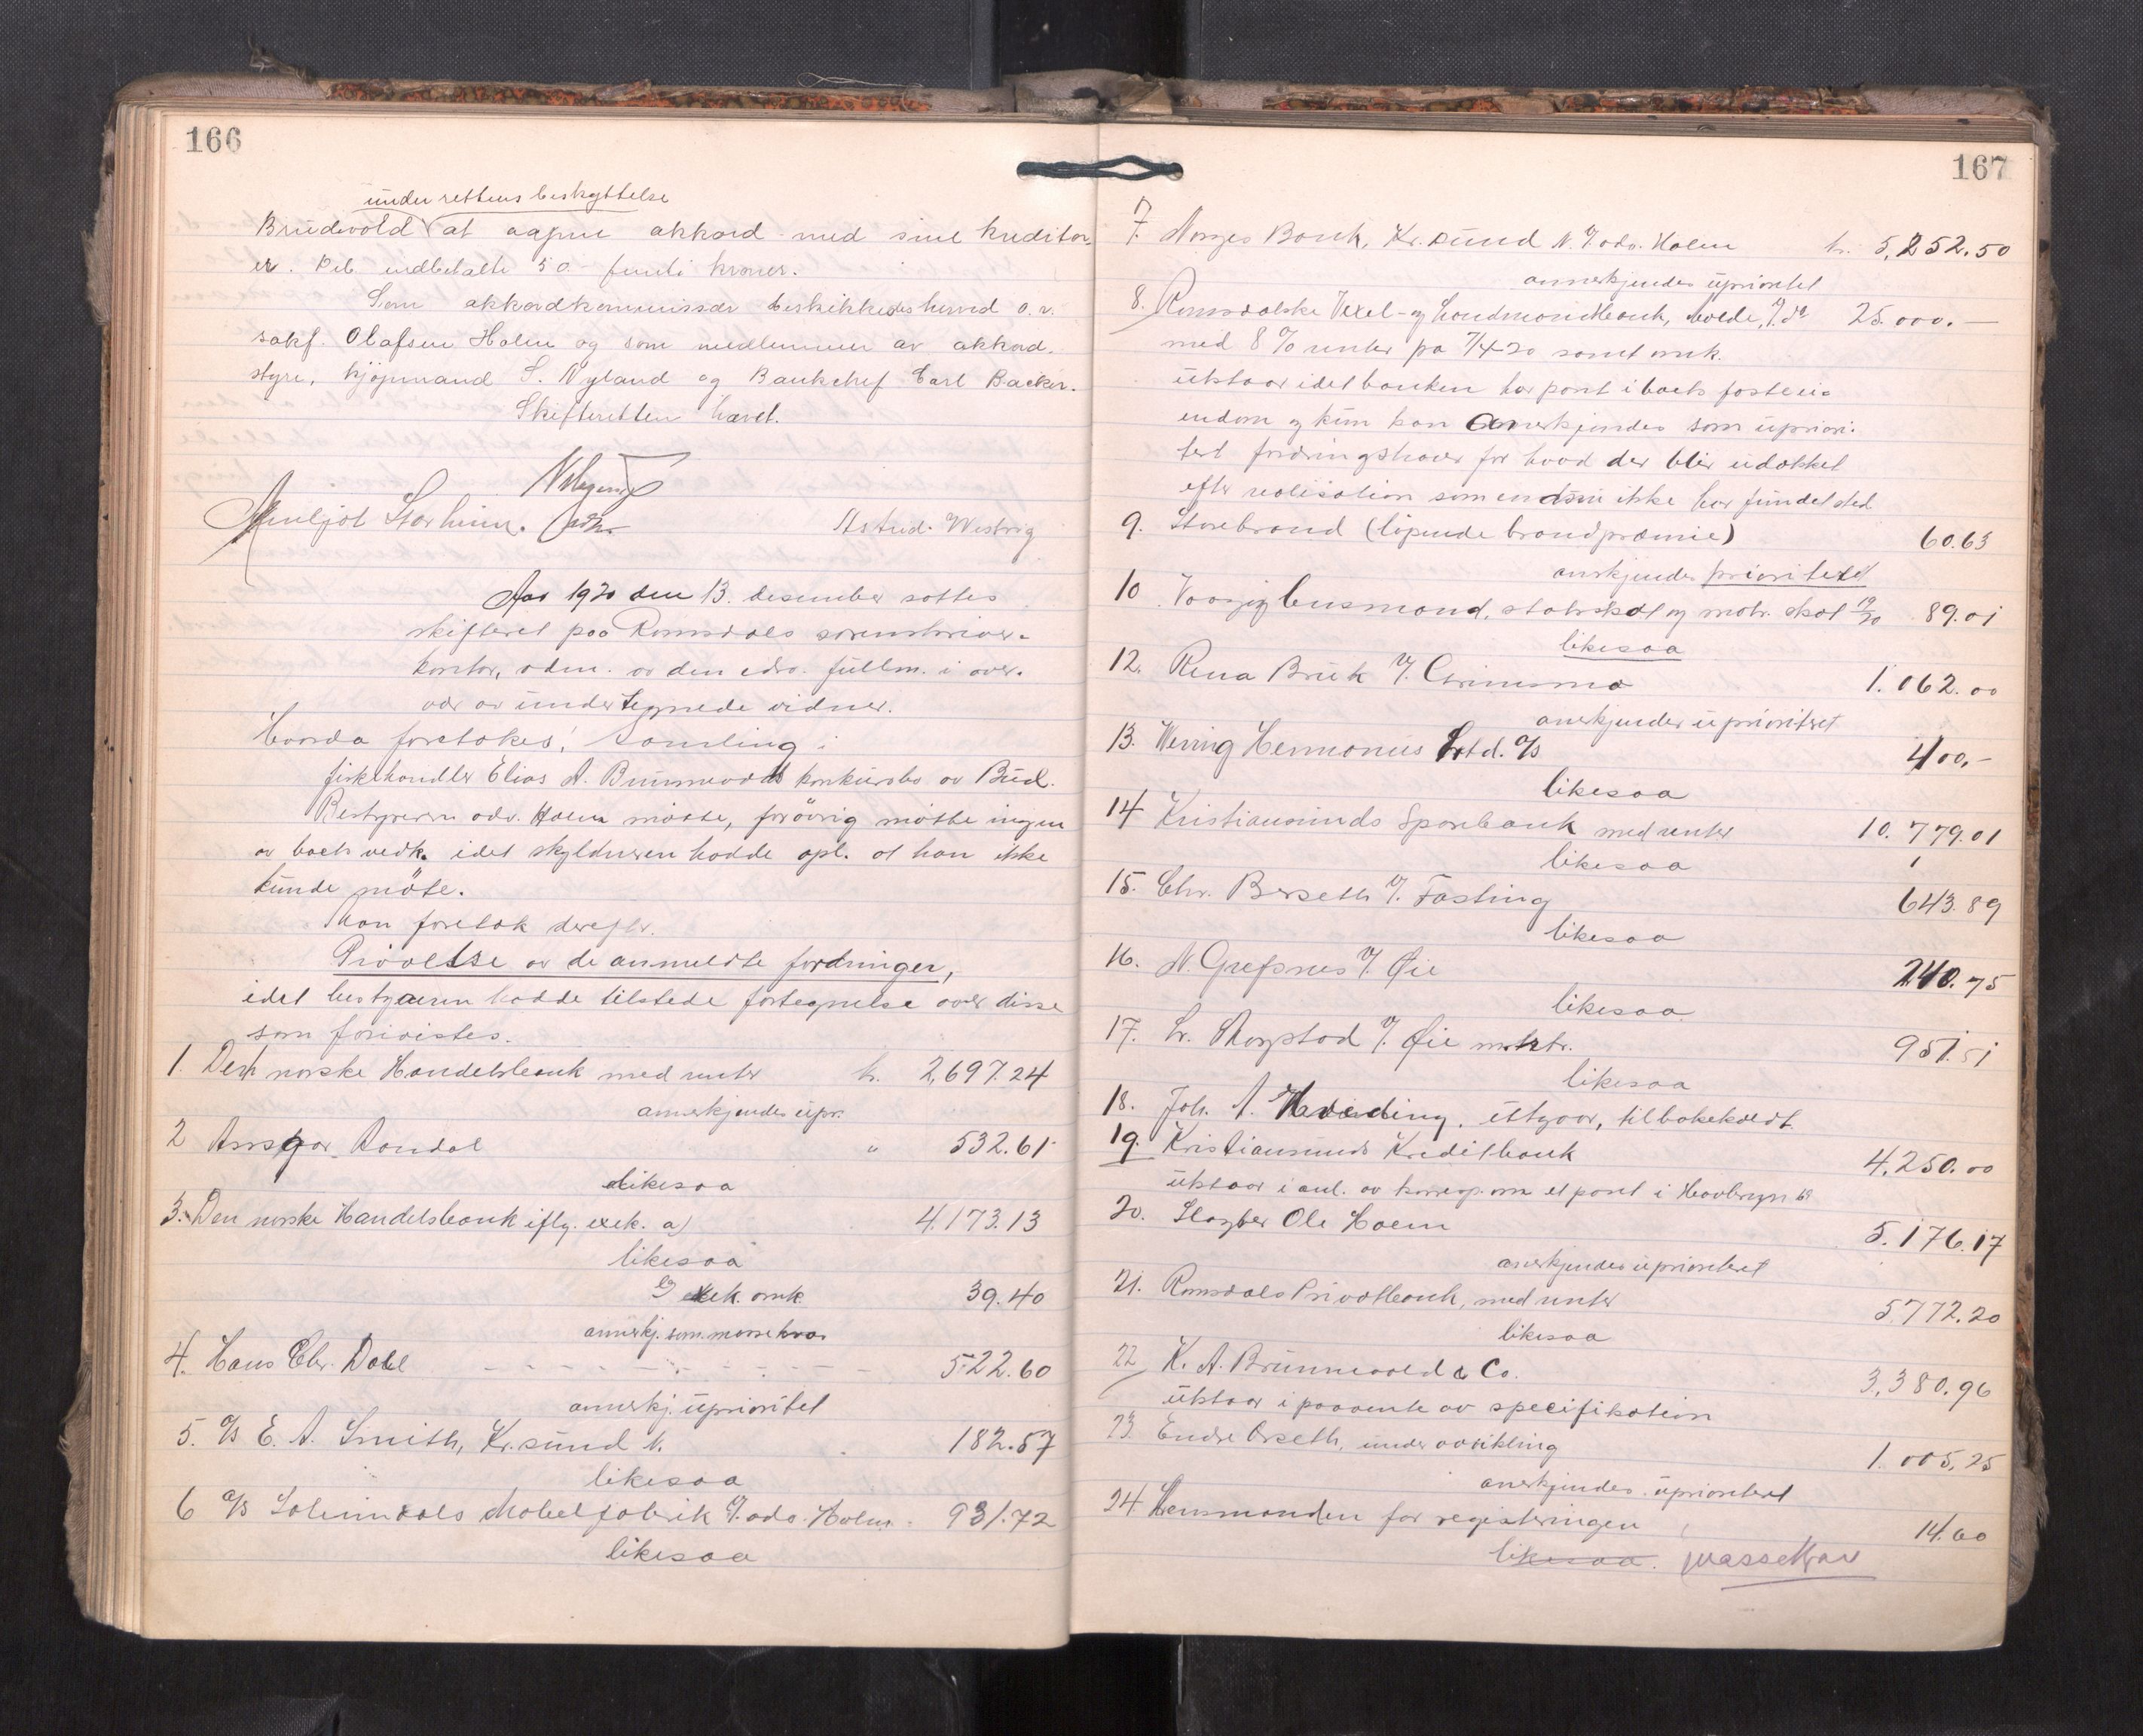 166
under rettens beskyttelse
Brudevold at aapne akkord med sine kreditor-
er. Deb indbetalte 50 - femti kroner.
Som akkordkommissær beskikkedes herved o.r.
sakf. Olafsen Holm og som medlemmer av akkord.
styre, kjøpmand S. Nyland og Bankchef Carl Backer.
Skifteretten hævet.
Arnljot Storheim. Astrid Westvig
Aar 1920 den 13. desember sattes
skifteret paa Romsdals sorenskriver-
kontor, adm. av den edsv. fuldm. i over-
vær av undertegnede vidner.
Hvorda foretokes: Samling i
fiskehandler Elias A. Brunnvolds konkursbo av Bud.
Bestyreren adv. Holm møtte, forøvrig møtte ingen
av boets vedk. idet skyldneren hadde opl. at han ikke
kunde møte.
Man foretok derefter.
Prøvelse av de anmeldte fordringer,
idet bestyreren hadde tilstede fortegnelse over disse
som forevistes.
1. Den norske Handelsbank med renter kr. 2,697.24
annerkjendes upr.
2 Ansgar Aandal " 532.61
likesaa
3. Den norske Handelsbank iflg. exek. a) 4.173.13
likesaa
b) exek. omk. 39.40
annerkj. som massekrav
4. Hans Chr. Dahl 522.60
annerkj. uprioritet
5. A/S E. A. Smith, Kr.sund N. 182.57
likesaa
6 A/S Solemdals Møbelfabrik v/ adv. Holm 931.72
likesaa
167
7. Norges Bank, Kr.sund N. v/ adv. Holm kr. 5,252.50
annerkjendes uprioritet
8. Romsdalske Vexel- og Landmandsbank, Molde, v/ do 25.000.-
med 8 % renter fra 7/4-20 samt omk.
utstaar idet banken har pant i boets fastei-
endom og kun kan anerkjendes som upriori-
tert fordringshaver for hvad der blir udækket
efter realisation som endnu ikke har fundet sted
9. Storebrand (løpende brandpræmie) 60.63
anerkjendes prioritert
10 Vaagøy lensmand, statsskat og matr. skat 19/20 89.01
likesaa
12. Rena Bruk v/ Grimsmo 1.062.00
anerkjendes uprioritert
13. Werring Hermanus Ltd. A/S 400.-
likesaa
14 Kristiansunds Sparebank med renter 10.779.01
likesaa
15. Chr. Berseth v/ Fasting 643.89
likesaa
16. N. Grefsnes v/ Øie 240.75
likesaa
17. Skogstad v/ Øie 951.51
likesaa
18. Joh. A. utgaar, tilbakekaldt.
19. Kristiansunds Kreditbank 4.250.00
utstaar i anl. av korresp. om et pant i
20. Ole Holm 5.176.17
anerkjendes uprioritert
21. Romsdals Privatbank, med renter 5772.20
likesaa
22 K. A. Brunnvold & Co. 3,380.96
utstaar i paavente av specifikation
23 Endre Orseth, under avvikling 1.005,25
anerkjendes uprioritert
24 Lensmanden for registreringen 14.60
likesaa. massekrav